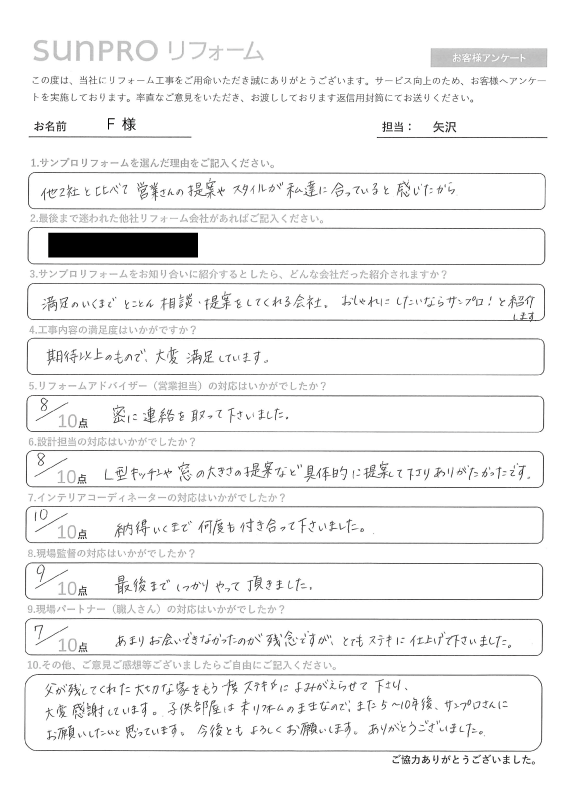 SUNPRO リフォーム
お客様アンケート
この度は、当社にリフォーム工事をご用命いただき誠にありがとうございます。サービス向上のため、お客様へアンケー
トを実施しております。率直なご意見をいただき、お渡ししております返信用封筒にてお送りください。
お名前 F 様 担当： 矢沢
1.サンプロリフォームを選んだ理由をご記入ください。
他2社と比べて 営業さんの提案や スタイルが 私達に 合っていると 感じたから
2.最後まで迷われた他社リフォーム会社があればご記入ください。
3.サンプロリフォームをお知り合いに紹介するとしたら、どんな会社だった紹介されますか？
満足のいくまで とことん 相談・提案をしてくれる会社。 おしゃれに したいならサンプロ！と紹介
します
4.工事内容の満足度はいかがですか？
期待以上のもので、大変 満足しています。
5.リフォームアドバイザー（営業担当）の対応はいかがでしたか？
8/10点 密に 連絡を 取って下さいました。
6.設計担当の対応はいかがでしたか？
8/10点 L型キッチンや 窓の大きさの提案など 具体的に提案して下さりありがたかったです。
7.インテリアコーディネーターの対応はいかがでしたか？
10/10点 納得いくまで 何度も 付き合って下さいました。
8.現場監督の対応はいかがでしたか？
9/10点 最後まで しっかり やって 頂きました。
9.現場パートナー（職人さん）の対応はいかがでしたか？
7/10点 あまり お会いできなかったのが 残念ですが、とてもステキに 仕上げて下さいました。
10.その他、ご意見ご感想等ございましたらご自由にご記入ください。
父が残してくれた大切な家をもう一度 ステキに よみがえらせて 下さり、
大変感謝しています。子供部屋は 未リフォームのままなので、また5～10年後、サンプロさんに
お願いしたいと思っています。 今後とも よろしくお願いします。 ありがとうございました。
ご協力ありがとうございました。